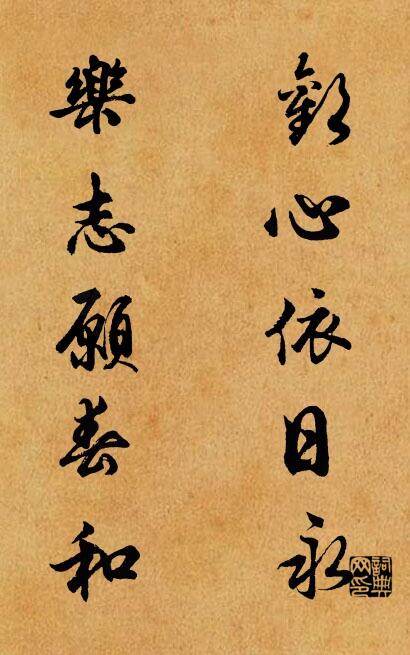 歡心依日永
樂志願春和
詞典
网印